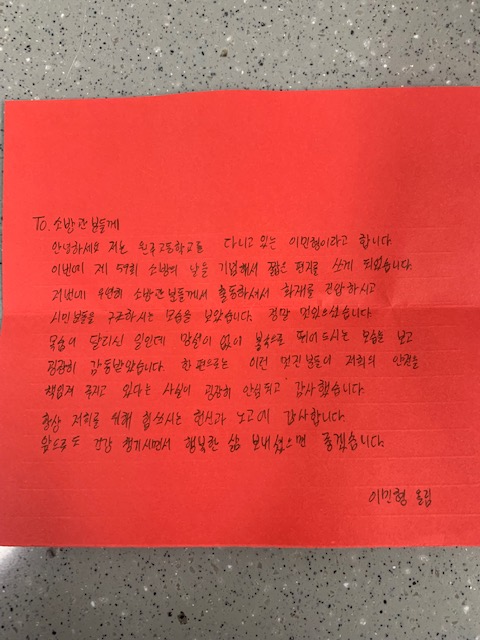 To. 소방관분들께
안녕하세요 저는 원주고등학교를 다니고 있는 이민형이라고 합니다.
이번에 제 59회 소방의 날을 기념해서 짧은 편지를 쓰게 되었습니다.
저번에 우연히 소방관분들께서 활동하셔서 화재를 진압하시고
시민분들을 구조하시는 모습을 보았습니다. 정말 멋있으셨습니다.
목숨이 달리신 일인데 망설이 없이 불속으로 뛰어드시는 모습을 보고
굉장히 감동받았습니다. 한편으로는 이런 멋진 분들이 저희의 안전을
책임져 주시고 있다는 사실이 굉장히 안심되고 감사했습니다.
항상 저희를 위해 힘쓰시는 헌신과 노고에 감사합니다.
앞으로도 건강 챙기시면서 행복한 삶 보내셨으면 좋겠습니다.
이민형 올림